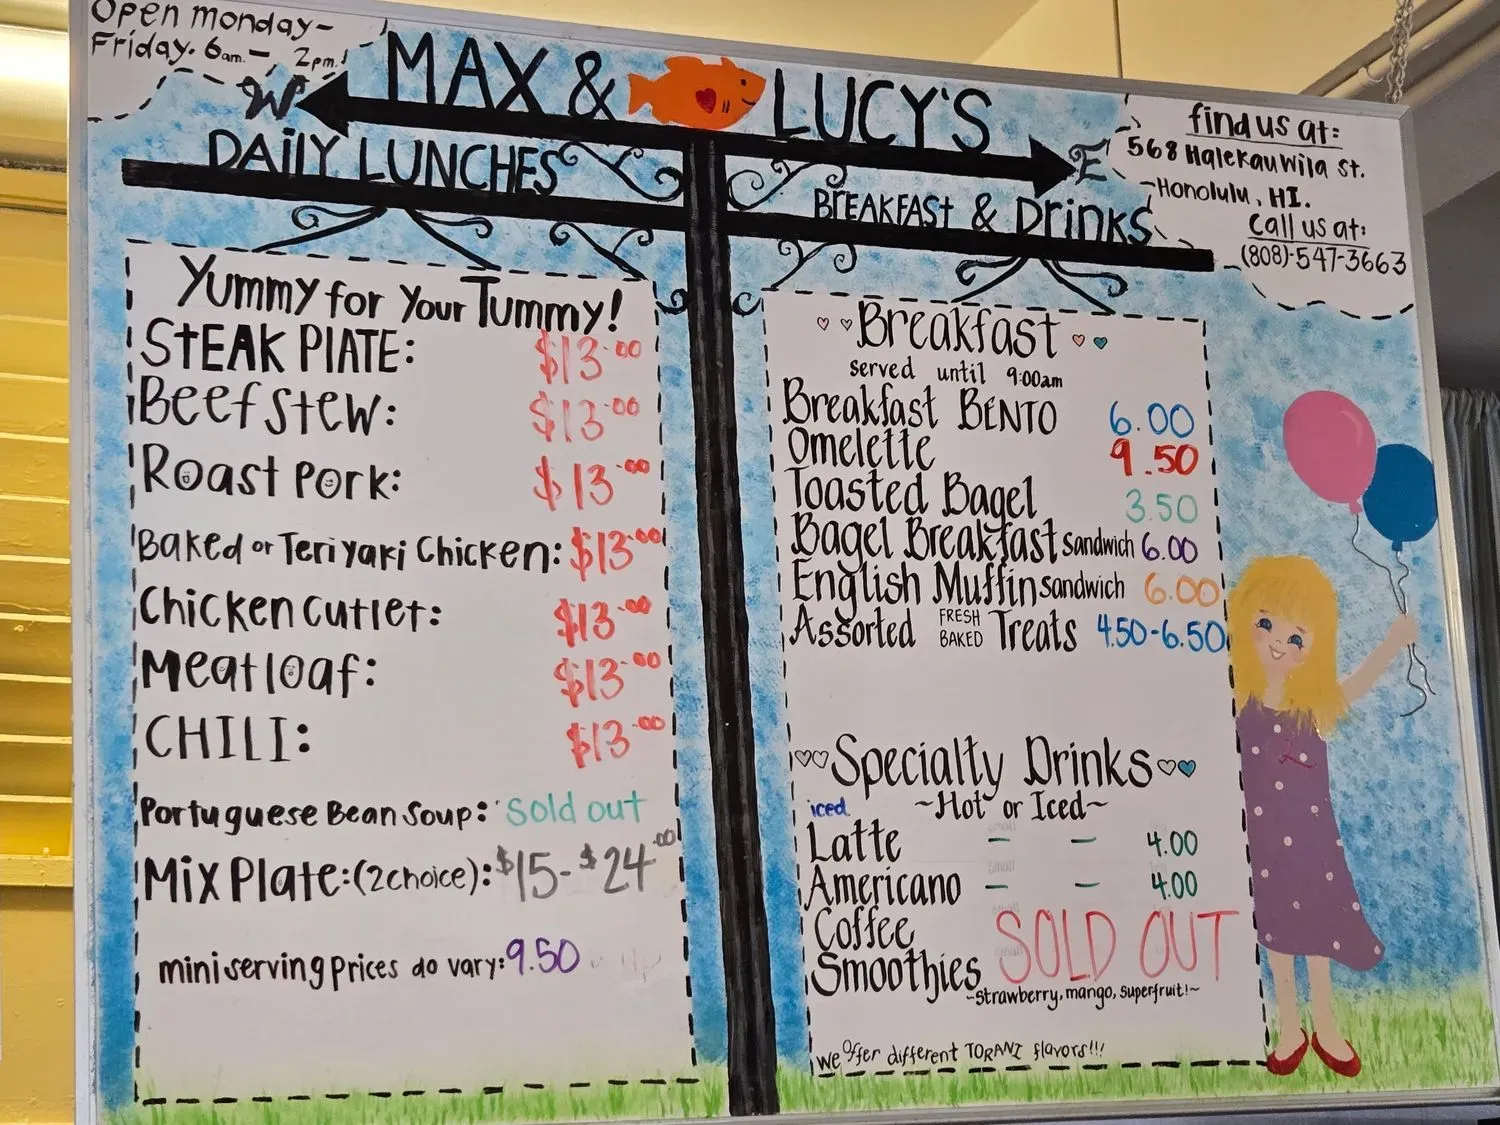 Open Monday-
Friday. 6am. - 2pm.
MAX & LUCY'S
W
E
find us at:
568 Halekauwila St.
Honolulu, HI.
Call us at:
(808)-547-3663
DAILY LUNCHES
BREAKFAST & Drinks
Yummy for Your Tummy!
STEAK PLATE: $13.00
Beef Stew: $13.00
Roast Pork: $13.00
Baked or Teriyaki Chicken: $13.00
Chicken Cutlet: $13.00
Meatloaf: $13.00
CHILI: $13.00
Portuguese Bean Soup: Sold out
Mix Plate: (2choice): $15-$24.00
mini serving prices do vary: 9.50
Breakfast
served until 9:00am
Breakfast BENTO 6.00
Omelette 9.50
Toasted Bagel 3.50
Bagel Breakfast Sandwich 6.00
English Muffin Sandwich 6.00
Assorted FRESH BAKED Treats 4.50-6.50
Specialty Drinks
iced ~Hot or Iced~
Latte - - 4.00
Americano - - 4.00
Coffee
Smoothies SOLD OUT
~Strawberry, mango, superfruit!~
We Offer different TORANI flavors!!!